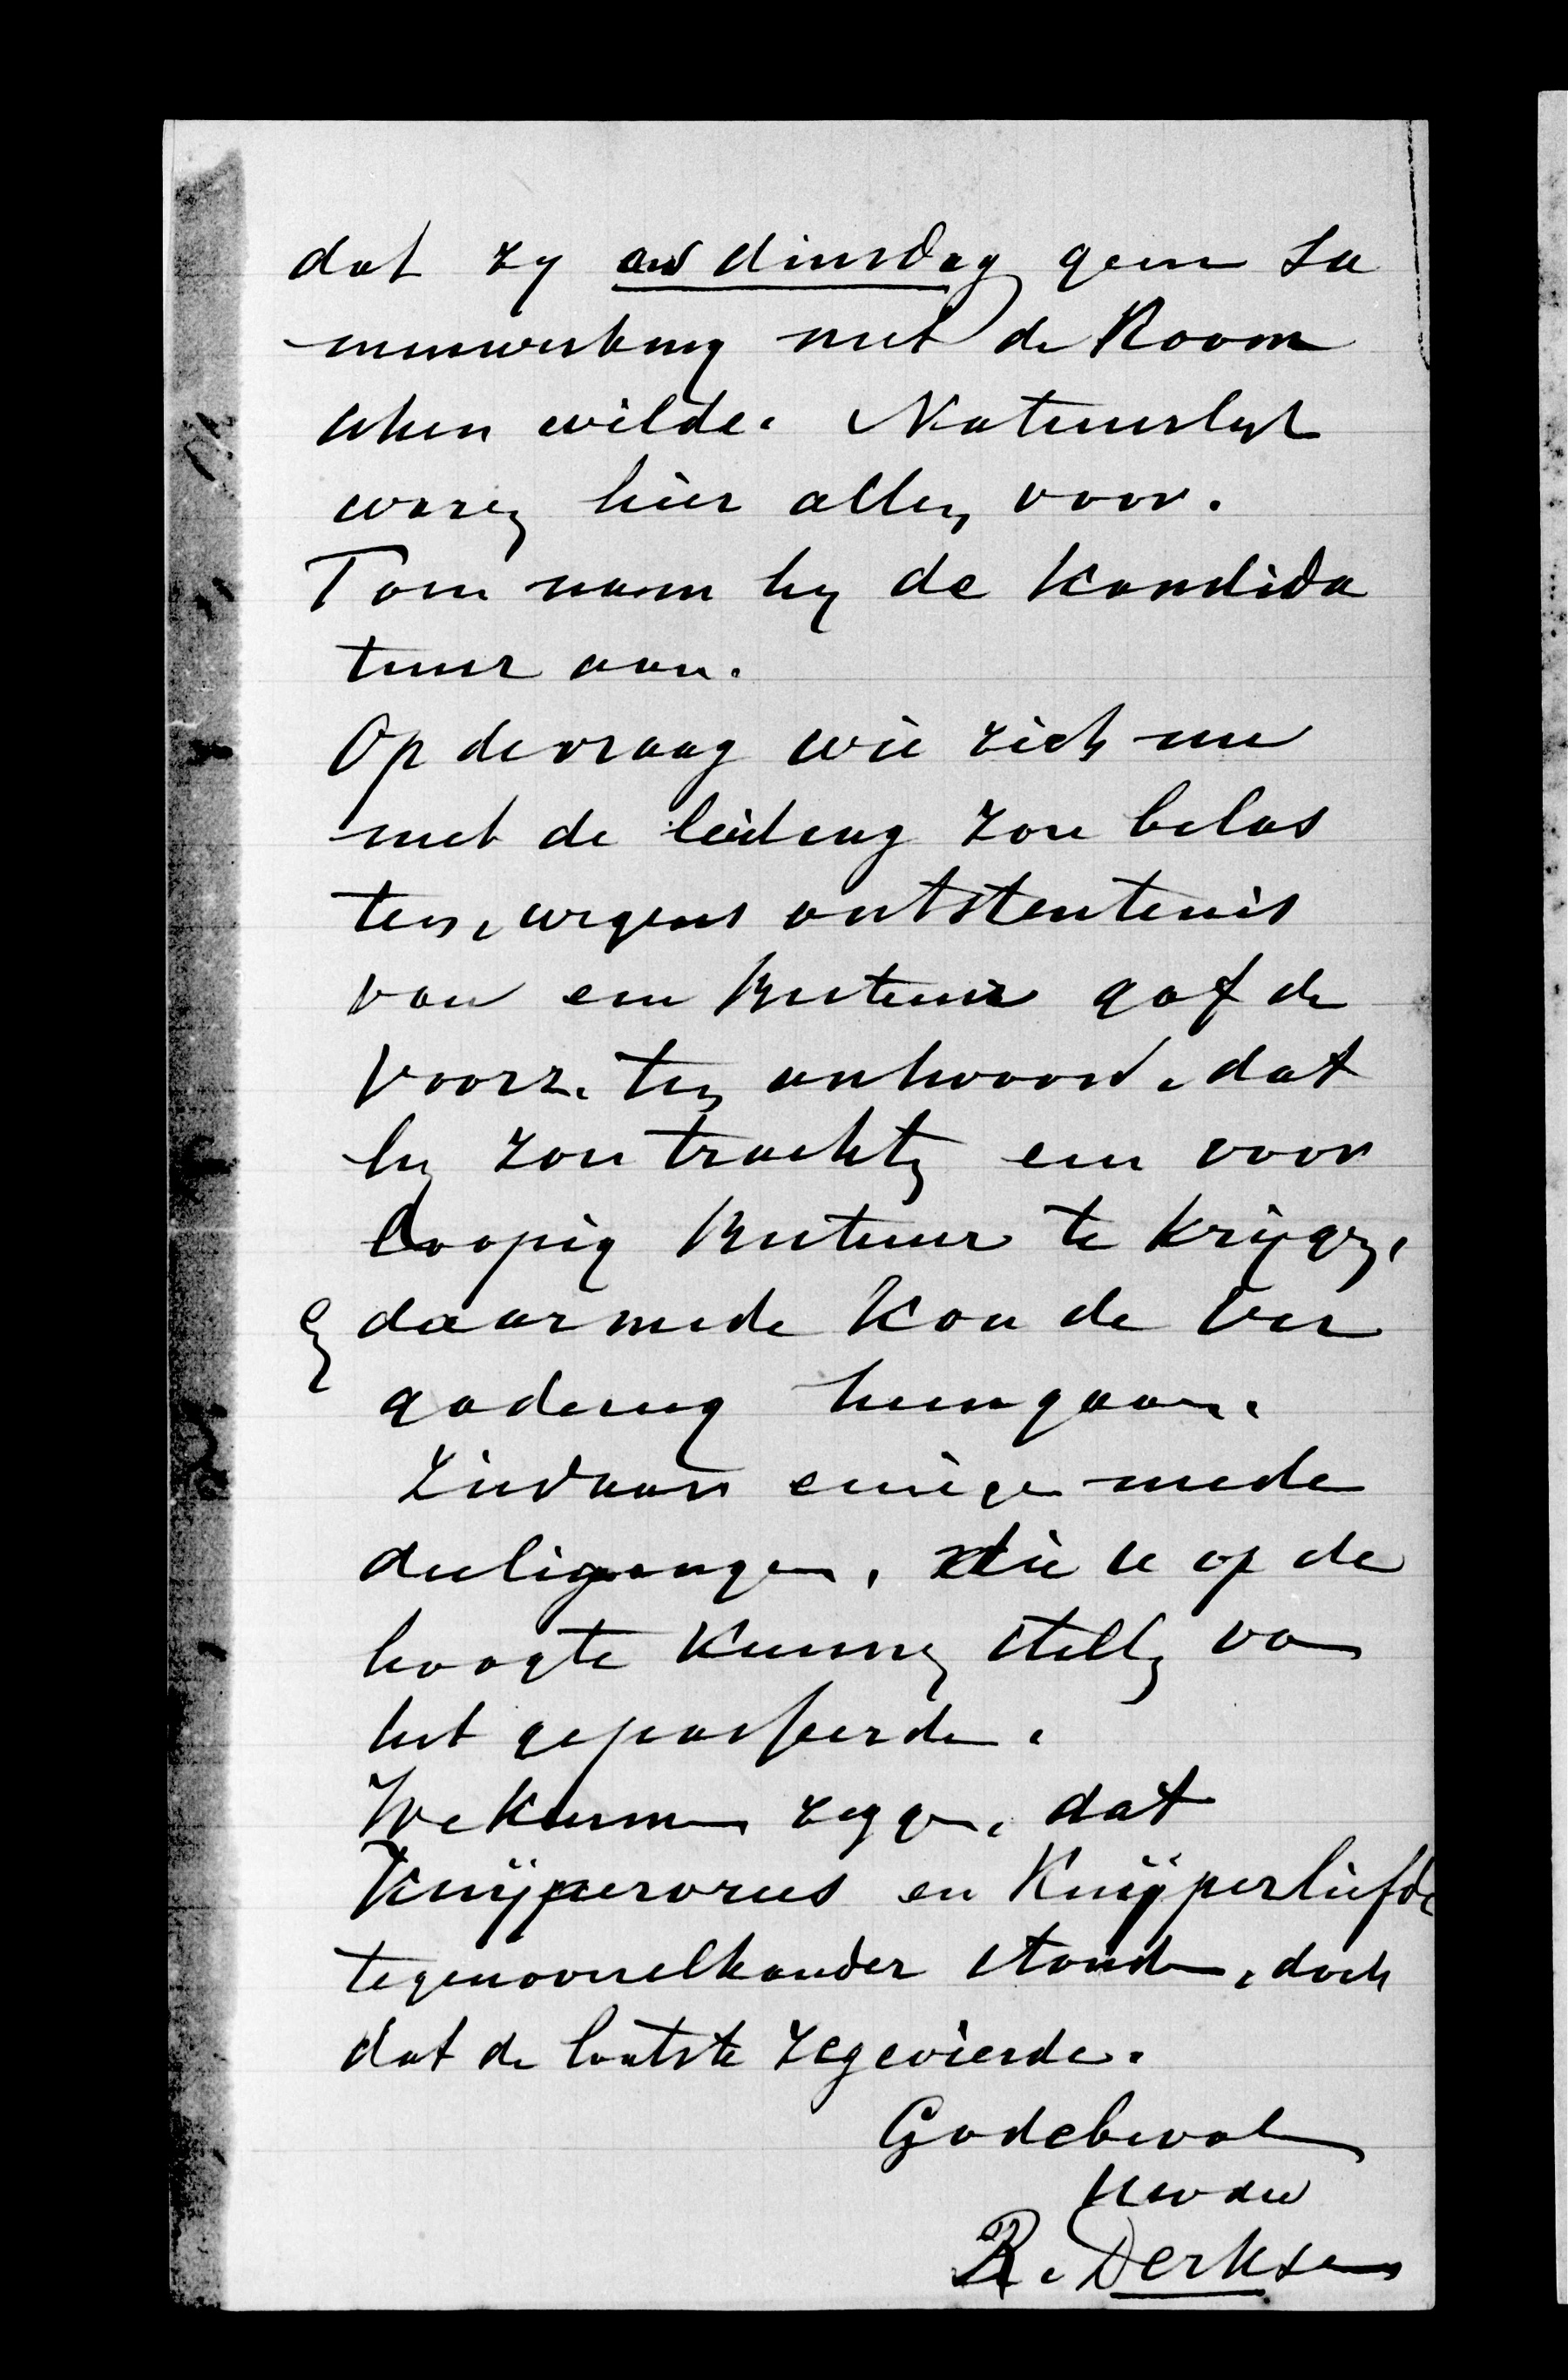 dat zy an dinsdag geen sa
menwerking met de Room
schen wilde. Natuurlyk
waren hier allen voor.
Toen nam hy de kandida
tuur aan.
Op de vraag wie zich nu
met de leiding zou belas
ten, wegens ontstentenis
van een Bestuur gaf de
Voorz. ten antwoord, dat
hy zou trachten een voor
loopig Bestuur te krijgen,
en daarmede kon de Ver
gadering heengaan.
Ziedaar eenige mede
deeligingen, die U op de
hoogte kunnen stellen van
het gepasseerde.
We kunnen zeggen, dat
Kuÿpervrees en Kuÿperliefde
tegenoverelkander stonden, doch
dat de laatste zegevierde.
Godebevolen
Uwdw
R. Derksen